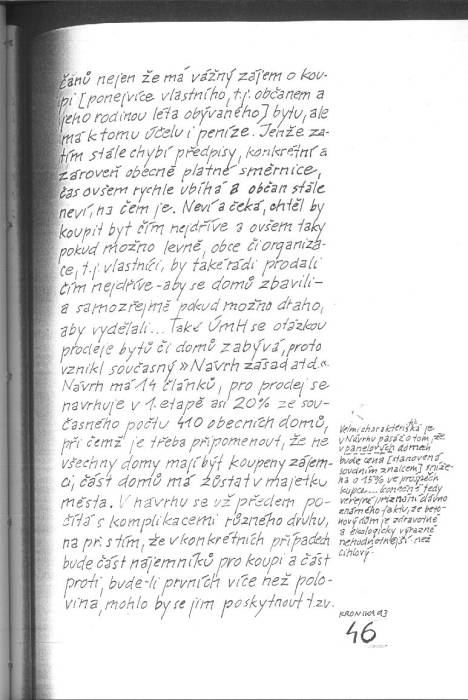 čanů nejen že má vážný zájem o kou-
pi [ponejvíce vlastního, t.j. občanem a
jeho rodinou léta obývaného] bytu, ale
má k tomu účelu i peníze. Jenže za-
tím stále chybí předpisy, konkrétní a
zároveň obecně platné směrnice,
čas ovšem rychle ubíhá a občan stále
neví, na čem je. Neví a čeká, chtěl by
koupit byt čím nejdříve a ovšem taky
pokud možno levně, obce či organiza-
ce, t.j. vlastníci, by také rádi prodali
čím nejdříve - aby se domů zbavili -
a samozřejmě pokud možno draho,
aby vydělali... Také ÚMH se otázkou
prodeje bytů či domů zabývá, proto
vznikl současný »Návrh zásad atd.«
Návrh má 14 článků, pro prodej se
navrhuje v 1. etapě asi 20% ze sou-
časného počtu 410 obecních domů,
při čemž je třeba připomenout, že ne
všechny domy mají být koupeny zájem-
ci, část domů má zůstat v majetku
města. V návrhu se už předem po-
čítá s komplikacemi různého druhu,
na př. s tím, že v konkrétních případech
bude část nájemníků pro koupi a část
proti, bude-li prvních více než polo-
vina, mohlo by se jim poskytnout t.zv.
Velmi charakteristická je
v Návrhu pasáž o tom, že
v panelových domech
bude cena [stanovená
soudním znalcem] sníže-
na o 15% ve prospěch
kupce... konečně tedy
veřejné přiznání dávno
známého faktu, že beto-
nový dům je zdravotně
a ekologicky výrazně
nehodnotnější než
cihlový.
KRONIKA 93
46